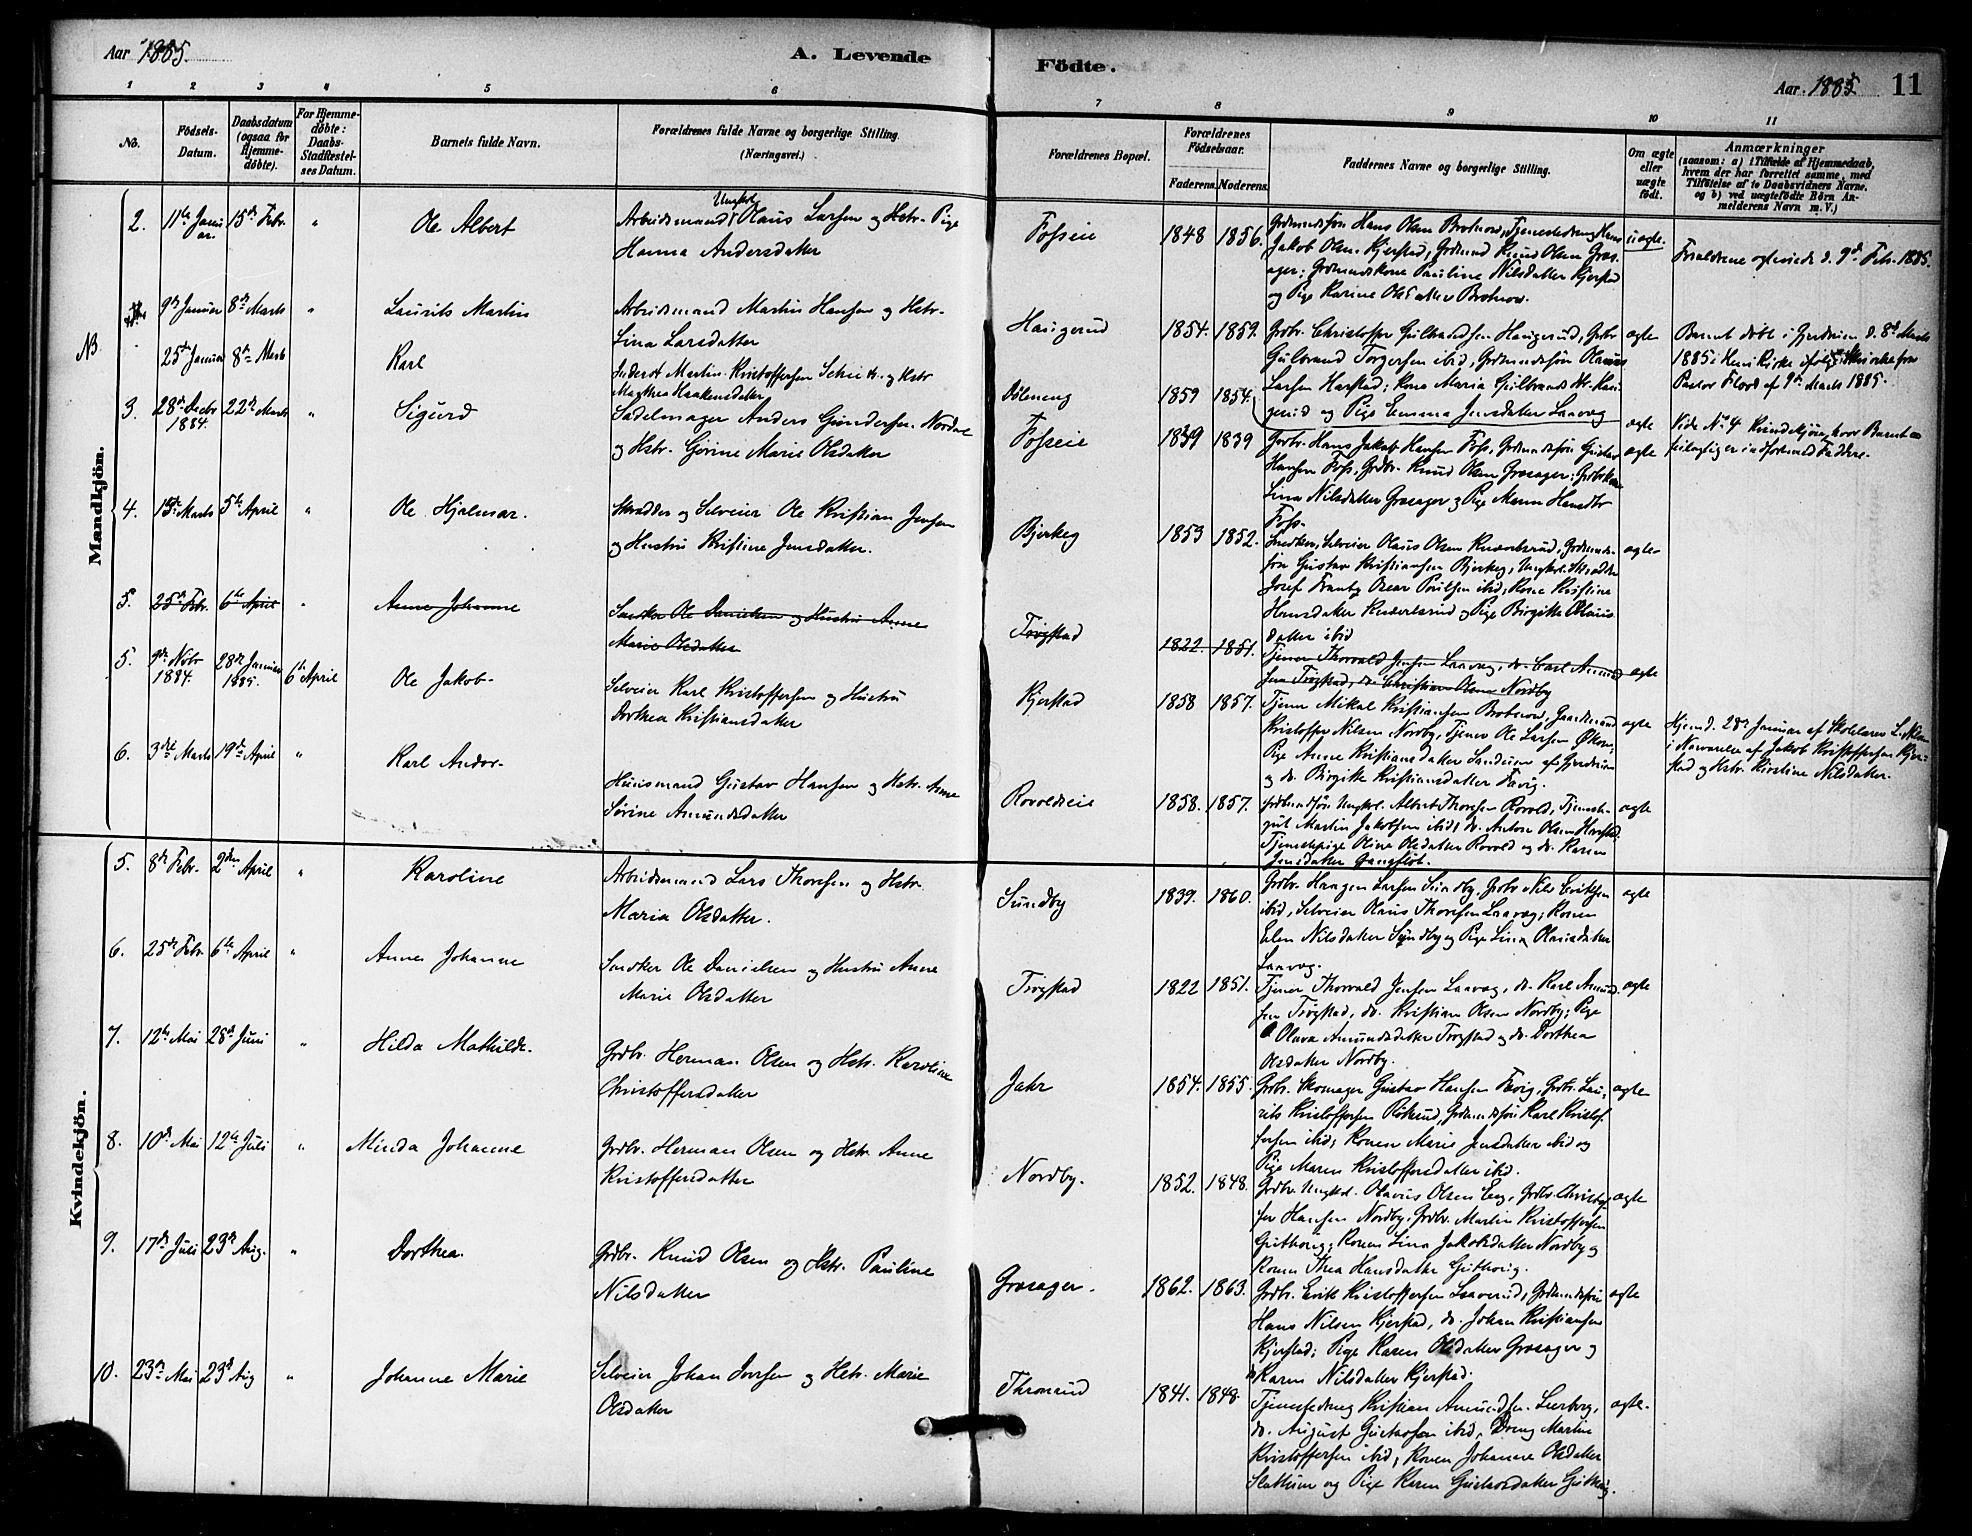 Aar 1885.
A. Levende
Födte.
Aar 1885.
11
1
2
3
4
5
6
7
8
9
10
11
No.
Födsels-
Datum.
Daabsdatum
(ogsaa for
Hjemme-
döbte).
For Hjemme-
döbte:
Daabs-
Stadfæstel-
ses Datum.
Barnets fulde Navn.
Forældrenes fulde Navne og borgerlige Stilling.
(Næringsvei.)
Forældrenes Bopæl.
Forældrenes
Födselsaar.
Faderens.
Moderens.
Faddernes Navne og borgerlige Stilling.
Om ægte
eller
uægte
födt.
Anmærkninger
(saasom: a) i Tilfælde af Hjemmedaab,
hvem der har forrettet samme, med
Tilföielse af to Daabsvidners Navne,
og b) ved uægtefödte Börn An-
melderens Navn m. V.)
Mandkjön.
2. 11te Janu
ar.
15de Febr.
"
Ole Albert
Ungkrl.
Arbeidsmand Olaus Larsen og Hstr. Pige
Hanna Andersdatter
Fosseie
1848
1856.
Grdmandssön Hans Olsen Brotnow, Tjenestedreng Hans
Jakob Olsen Kjerstad, Grdmand Knud Olsen Gras-
ager; Grdmandskone Pauline Nilsdatter Kjerstad
og Pige Karine Olsdatter Brotnow.
uægte.
Forældrene ægteviede d. 9de Feb. 1885.
NB
9de Januar
8de Marts
"
Laurits Martin
Arbeidsmand Martin Hansen og Hstr.
Lina Larsdatter
Haugerud
1854.
1859.
Grdbr. Christoffer Gulbrandsen Haugerud, Grdbr
Gulbrand Torgersen ibid, Grdmandssön Olaus
Larsen Harstad; Kone Maria Gulbrandsdtr. Hau-
gerud og Pige Emma Jensdatter Laaveg
ægte
Barnet döbt i Gjerdrum d. 8de Marts
1885 i Heni Kirke ifölge Skrivelse fra
Pastor Flood af 9de Marts 1885.
25de Januar
8de Marts
Karl
Inderst Martin Kristoffersen Schie og Hstr
Mathea Haakensdatter
1859
1854.
ægte
Vide No 4 Kvindekjön, hvor Barnet
feilagtig er indfört med Faddere.
3. 28de Decbr
1884.
22de Marts
"
Sigurd
Sadelmager Anders Gundersen Nordal
og Hstr. Gjörine Marie Olsdatter
Fosseie
1839
1839
Grdbr. Hans Jakob Hansen Foss, Grdmandssön Gustav
Hansen Foss, Grdbr. Knud Olsen Grasager; Grdbrkone
Lina Nilsdatter Grasager og Pige Maren Hansdtr
Foss.
ægte
4. 15de Marts
5te April
"
Ole Hjalmar.
Skrædder og Selveier Ole Kristian Jensen
og Hustru Kristine Jensdatter.
Bjerkeg
1853
1852.
Snedker, Selveier Olaus Olsen Knævelsrud, Grdmands-
sön Gustav Kristiansen Bjerkeg, Ungkrl. Skrædder
Josef Frantz Oscar Poulsen ibid, Kone Kristine
Hansdatter Knævelsrud og Pige Birgitte Olaus
datter ibid
ægte
5. 25de Febr.
6te April
"
Anne Johanne
Snedker Ole Danielsen og Hustru Anne
Marie Olsdatter
Trögstad
1822.
1851.
Tjener Thorvald Jensen Laaveg, do. Carl Amund
sen Trögstad, do. Christian Olsen Nordby
ægte
5. 9de Novbr
1884.
28de Januar
1885.
6te April
Ole Jakob
Selveier Karl Kristoffersen og Hustru
Dorthea Kristiansdatter
Kjerstad
1858
1857.
Tjener Mikal Kristiansen Brotnow, Gaardmand
Kristoffer Nilsen Nordby, Tjener Ole Larsen Økern,
Pige Anne Kristiansdatter Sandum af Gjerdrum
og do. Birgitte Kristiansdatter Fævig.
ægte
Hjemd. 28de Januar af Skolelærer L. Nilsen
i Nærværelse af Jakob Kristoffersen Kjer-
stad og Hstr. Kirstine Nilsdatter.
6. 3die Marts
19de April
"
Karl Andor
Husmand Gustav Hansen og Hstr. Anne
Sörine Amundsdatter
Rovoldseie
1858.
1857.
Grdmandssön Ungkrl. Albert Thoresen Rovold, Tjeneste-
gut Martin Jakobsen ibid, do. Anton Olsen Harstad,
Tjenestepige Oline Olsdatter Rovold og do. Karen
Jensdatter Gangflöt.
ægte
Kvindekjön.
5. 8de Febr.
2den April
"
Karoline
Arbeidsmand Lars Thoresen og Hstr.
Maria Olsdatter.
Sundby
1839.
1860.
Grdbr. Haagen Larsen Sundby, Grdbr Nils Eriksen
ibid, Selveier Olaus Thoresen Laaveg; Konen
Elen Nilsdatter Sundby og Pige Lina Olausdatter
Laaveg.
ægte
6. 25de Febr
6te April
"
Anne Johanne
Snedker Ole Danielsen og Hustru Anne
Marie Olsdatter
Trögstad
1822
1851.
Tjener Thorvald Jensen Laaveg, do. Karl Amund-
sen Trögstad, do. Kristian Olsen Nordby; Pige
Olava Amundsdatter Trögstad og do. Dorthea
Olsdatter Nordby.
ægte
7. 12te Mai
28de Juni
"
Hilda Mathilde.
Grdbr. Herman Olsen og Hstr. Karoline
Christoffersdatter
Jahr
1854.
1855.
Grdbr. Skomager Gustav Hansen Fævig, Grdbr. Lau-
rits Kristoffersen Röterud, Grdmandssön Karl Kristof-
fersen ibid; Konen Marie Jensdatter ibid og
Pige Maren Kristoffersdatter ibid.
ægte
8. 10de Mai
12te Juli
"
Minda Johanne
Grdbr. Herman Olsen og Hstr. Anne
Kristoffersdatter
Nordby.
1852.
1848.
Grdbr. Ungkrl. Olavus Olsen Eng, Grdbr. Christof-
fer Hansen Nordby, Grdbr. Martin Kristoffersen
Gutthorig; Konen Lina Jakobsdatter Nordby og
Konen Thea Hansdatter Gutthorig.
ægte
9. 17de Juli
23de Aug.
"
Dorthea.
Grdbr. Knud Olsen og Hstr. Pauline
Nilsdatter
Grasager.
1862.
1863.
Grdbr. Erik Kristoffersen Laaverud, Grdmandssön
Hans Nilsen Kjerstad, do. Johan Kristiansen
Kjerstad; Pige Karen Olsdatter Grasager og
Karen Nilsdatter Kjerstad.
ægte
10. 23de Mai
23de Aug
"
Johanne Marie
Selveier Johan Iversen og Hstr. Marie
Olsdatter
Thronrud
1841.
1848.
Tjenestedreng Kristian Amundsen Leerberg,
do. August Gustavsen ibid, Dreng Martin
Kristoffersen ibid; Konen Johanne Olsdatter
Slattum og Pige Karen Gustavsdatter Gutthorig.
ægte.